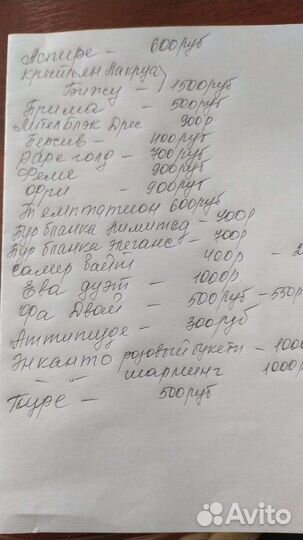 Аспире – 600руб
Кристиан Лакруа
Бижу – 1500руб
Прима – 500руб
Лител Блэк Дрес 900р
Персив – 400руб
Раре голд – 700руб
Феме 900руб
Офри – 900руб
Темптатион 600руб
Пур бланка лимитед – 400р
Пур бланка элеганс – 700р
Самер вайт 400р – 2
Ева дуэт – 1000р
Ода Двай – 500руб – 550р
Аттитуде – 300руб
Энканто розовый букети – 1000
– " – шарминг 1000р
Пуре – 500руб
Avito